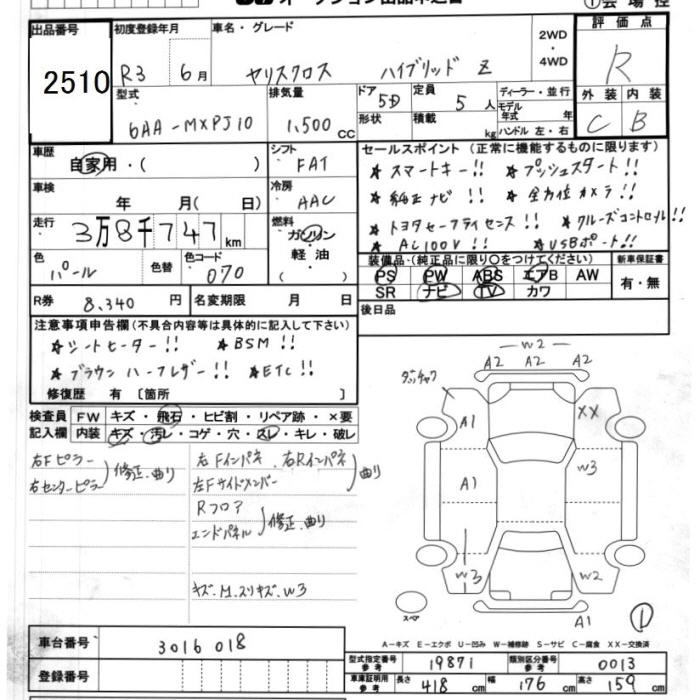 出品番号 初度登録年月 車名・グレード 2WD・4WD 評価点
2510 R3 6月 ヤリスクロス ハイブリッド Z R
型式 排気量 ドア 5D 定員 5人 ディーラー・並行 外装 内装
6AA-MXPJ10 1,500cc 形状 積載 kg モデル年式 年式 ハンドル 左・右 C B
車歴 自家用・( ) シフト FAT セールスポイント (正常に機能するものに限ります)
車検 年 月( 日) 冷房 AAC ★スマートキー!! ★プッシュスタート!!
★純正ナビ!! ★全方位カメラ!!
走行 3万8千747km 燃料 ガソリン・軽油・( ) ★トヨタセーフティセンス!! ★クルーズコントロール!!
★AC100V!! ★USBポート!!
色 パール 色替 色コード 070 装備品・(純正品に限り○をつけてください) 新車保証書
PS PW ABS エアB AW 有・無
R券 8,340円 名変期限 月 日 SR ナビ TV カワ
後日品
注意事項申告欄(不具合内容等は具体的に記入して下さい)
★シートヒーター!! ★BSM!!
★ブラウン ハーフレザー!! ★ETC!!
修復歴 有[箇所 ]
検査員 FW キズ・飛石・ヒビ割・リペア跡・×要
記入欄 内装 キズ・汚レ・コゲ・穴・スレ・キレ・破レ
右Fピラー 右センターピラー 修正、曲り
左Fインパネ、右Rインパネ
左Fサイドメンバー 曲り
Rフロア
エンドパネル 修正、曲り
キズ、M、スリキズ、W3
W2
A2 A2 A2
A1 XX
A1 W3
W3 W2
A1
スペア
①
車台番号 3016018
A-キズ E-エクボ U-凹み W-補修跡 S-サビ C-腐食 XX-交換済
型式指定番号 参考 19871 類別区分番号 参考 0013
登録番号 車庫証明用 参考 長さ 418cm 幅 176cm 高さ 159cm